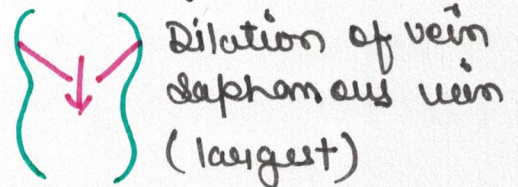 Dilation of vein
Saphenous vein
(largest)